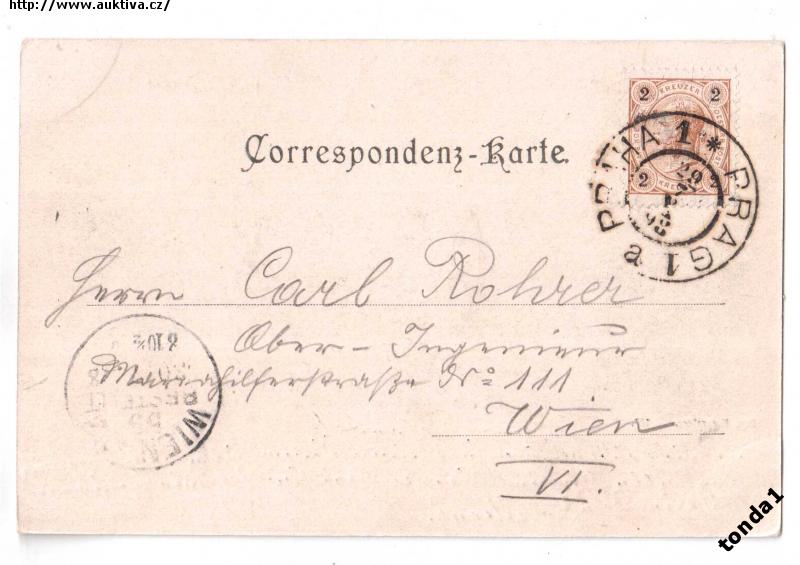 http://www.auktiva.cz/
2 KREUZER 2
2 KREUZER
Correspondenz-Karte.
PRAHA 1 * PRAG 1 a
29
98
Herrn Carl Rohrer
Ober-Ingenieur
Mariahilferstraße No 111
Wien
VI.
WIEN
tonda1